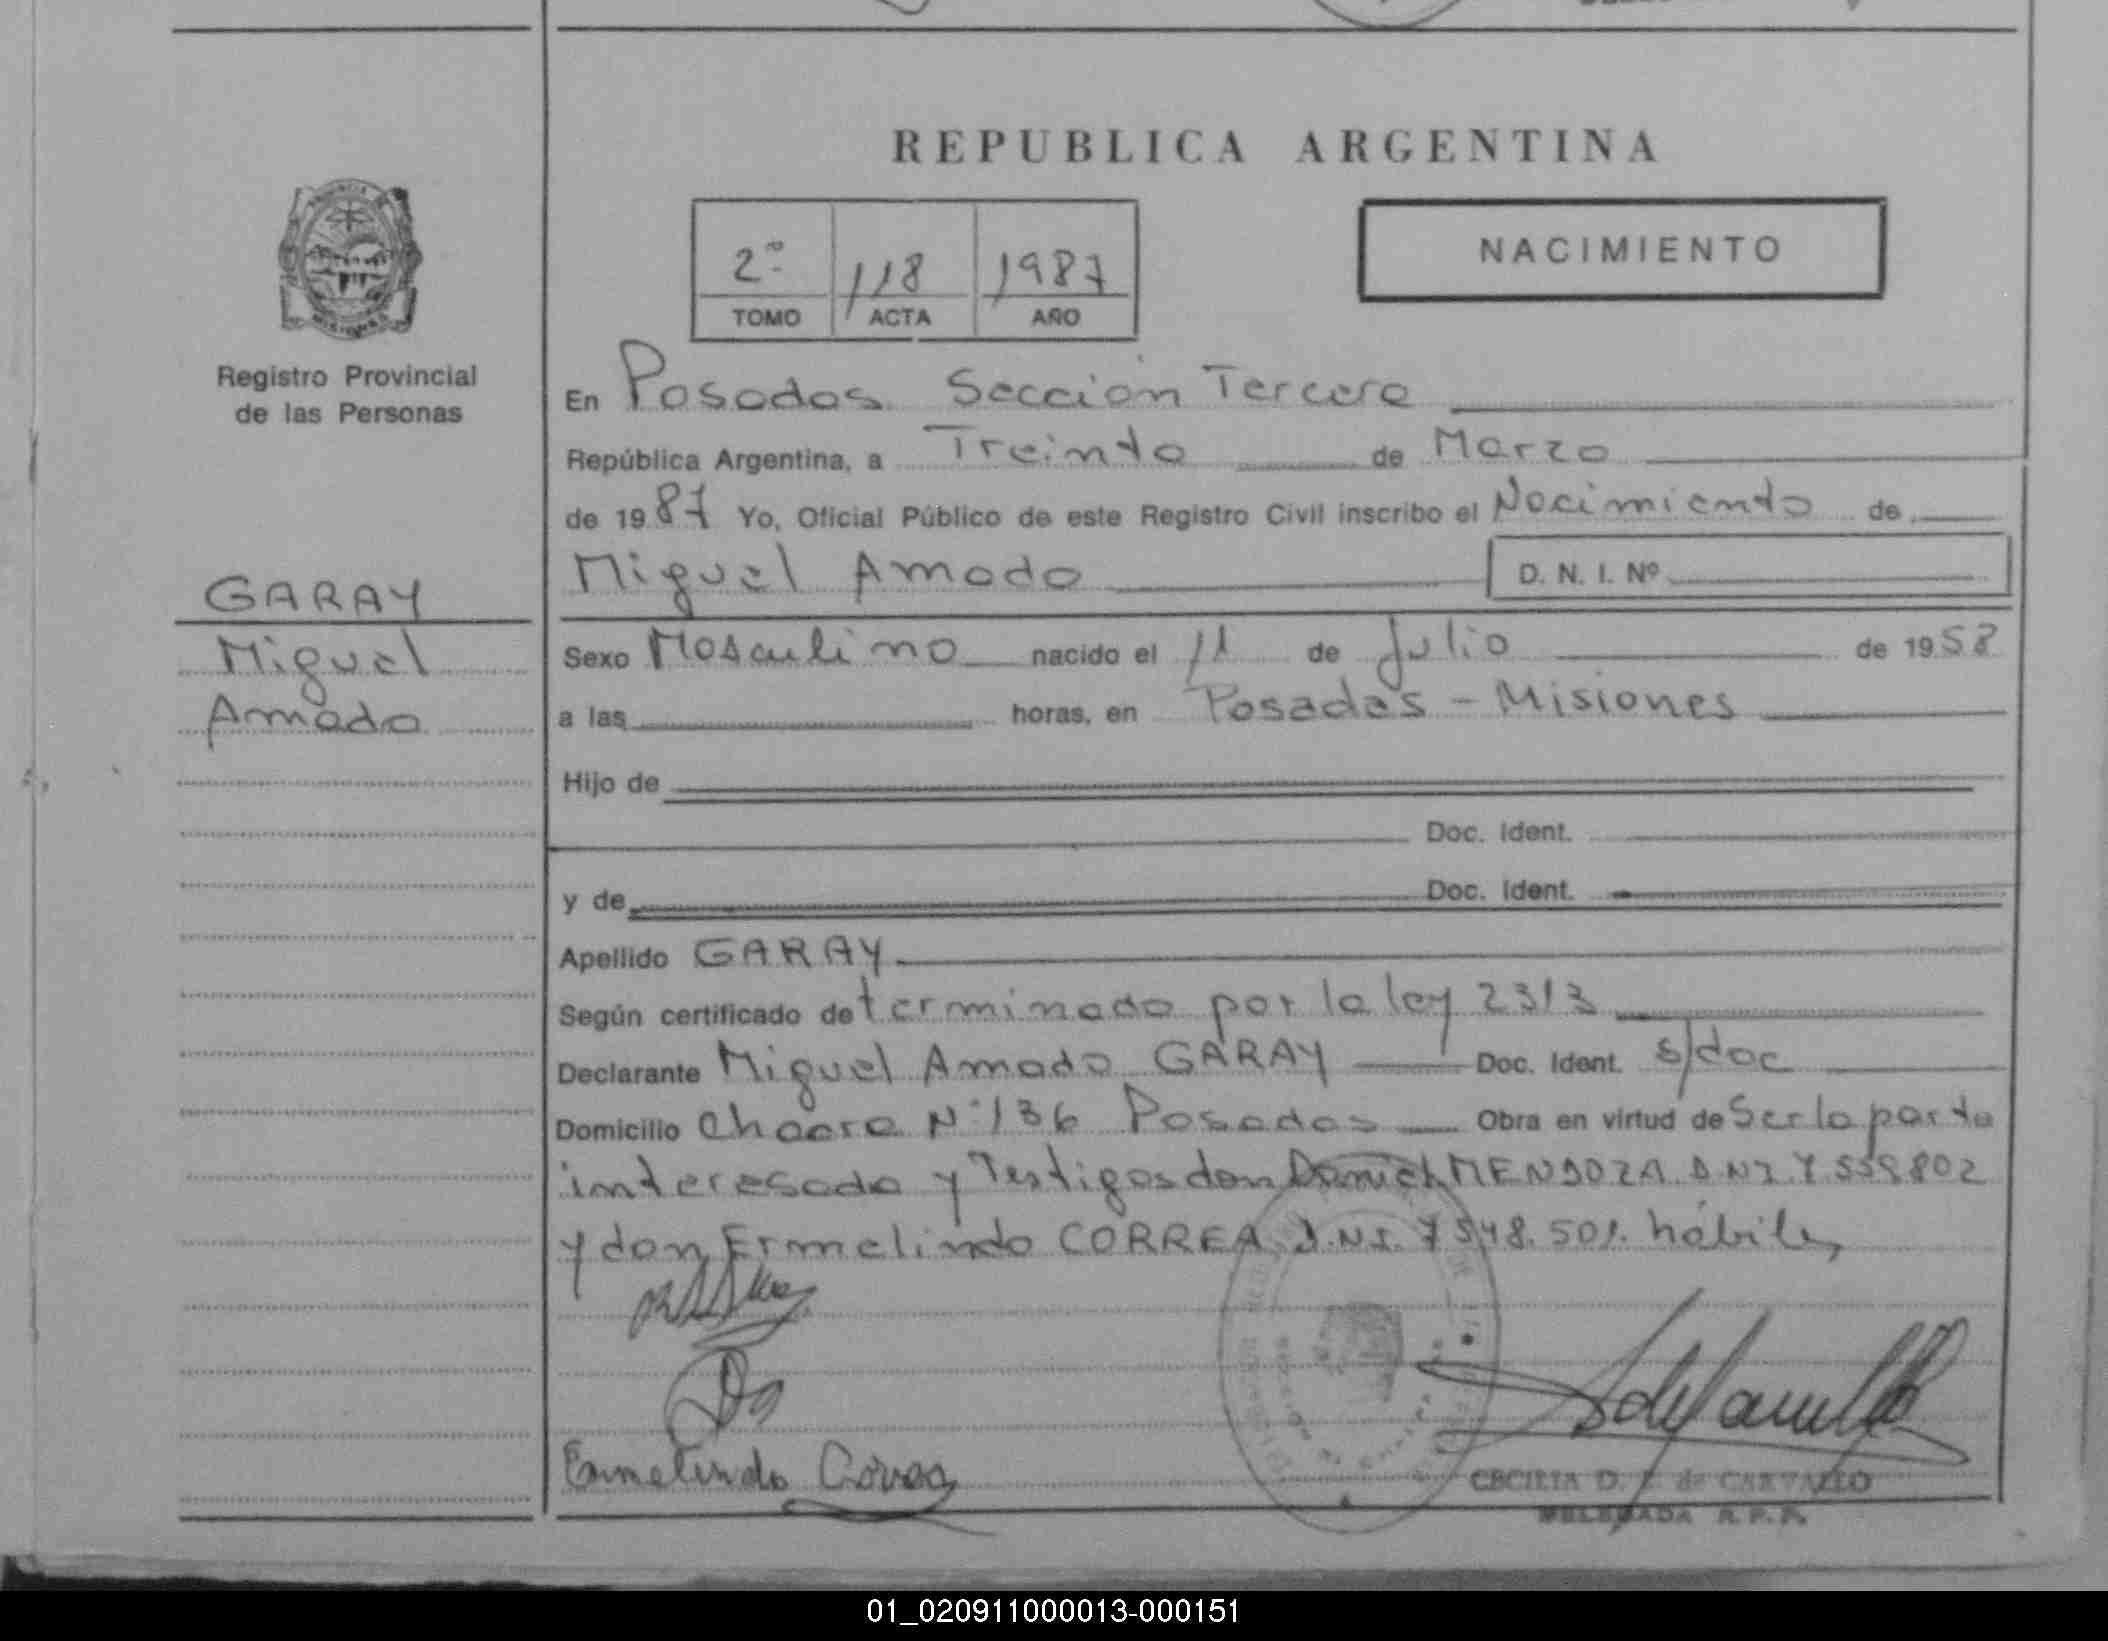 REPUBLICA ARGENTINA
2º 118 1987
TOMO ACTA AÑO
NACIMIENTO
Registro Provincial
de las Personas
GARAY
Miguel
Amado
En Posadas Sección Tercera
República Argentina, a Treinta de Marzo
de 1987 Yo, Oficial Público de este Registro Civil inscribo el Nacimiento de
Miguel Amado D. N. I. Nº
Sexo Masculino nacido el 11 de Julio de 1958
a las horas, en Posadas - Misiones
Hijo de
Doc. Ident.
y de Doc. Ident.
Apellido GARAY
Según certificado determinado por la ley 2313
Declarante Miguel Amado GARAY Doc. Ident. s/doc
Domicilio Chacra Nº 136 Posadas Obra en virtud de Ser la parte
interesada y Testigos don Daniel MENDOZA D.N.I. 7.559.802
y don Ermelindo CORREA D.N.I. 7.548.501. hábiles
Ermelindo Correa
CECILIA D. de CARVALLO
DELEGADA R.P.P.
01_020911000013-000151